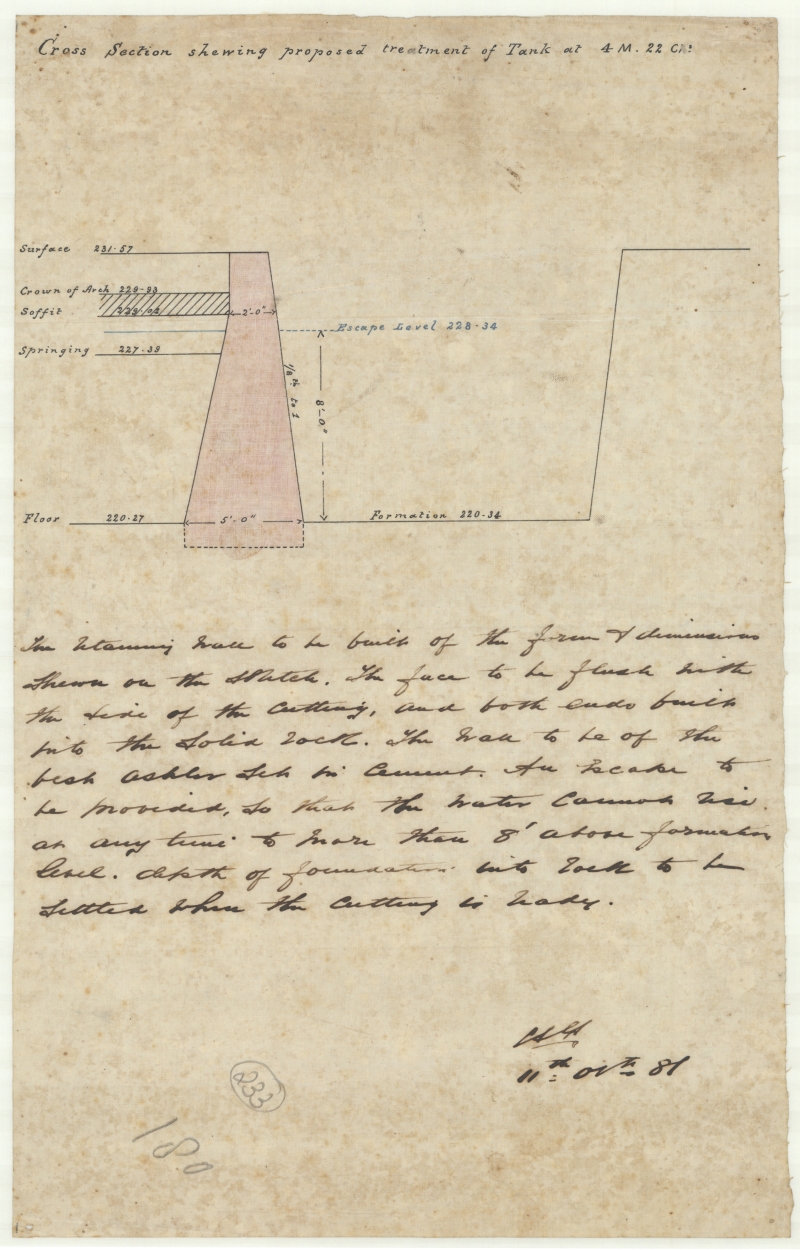 Cross Section shewing proposed treatment of Tank at 4 M. 22 Chs
Surface 231.57
Crown of Arch 229.93
Soffit
2'-0"
Escape Level 228.34
Springing 227.39
1/8th to 1
8'-0"
Floor 220.27
5'-0"
Formation 220.34
The retaining wall to be built of the form & dimensions
shewn on the sketch. The face to be flush with
the side of the Cutting, and both ends built
into the Solid rock. The wall to be of the
best ashler set in Cement. An escape to
be provided, so that the water Cannot rise
at any time to more than 8' above formation
level. depth of foundation into rock to be
settled when the Cutting is ready.
11th Octr 81
233
180